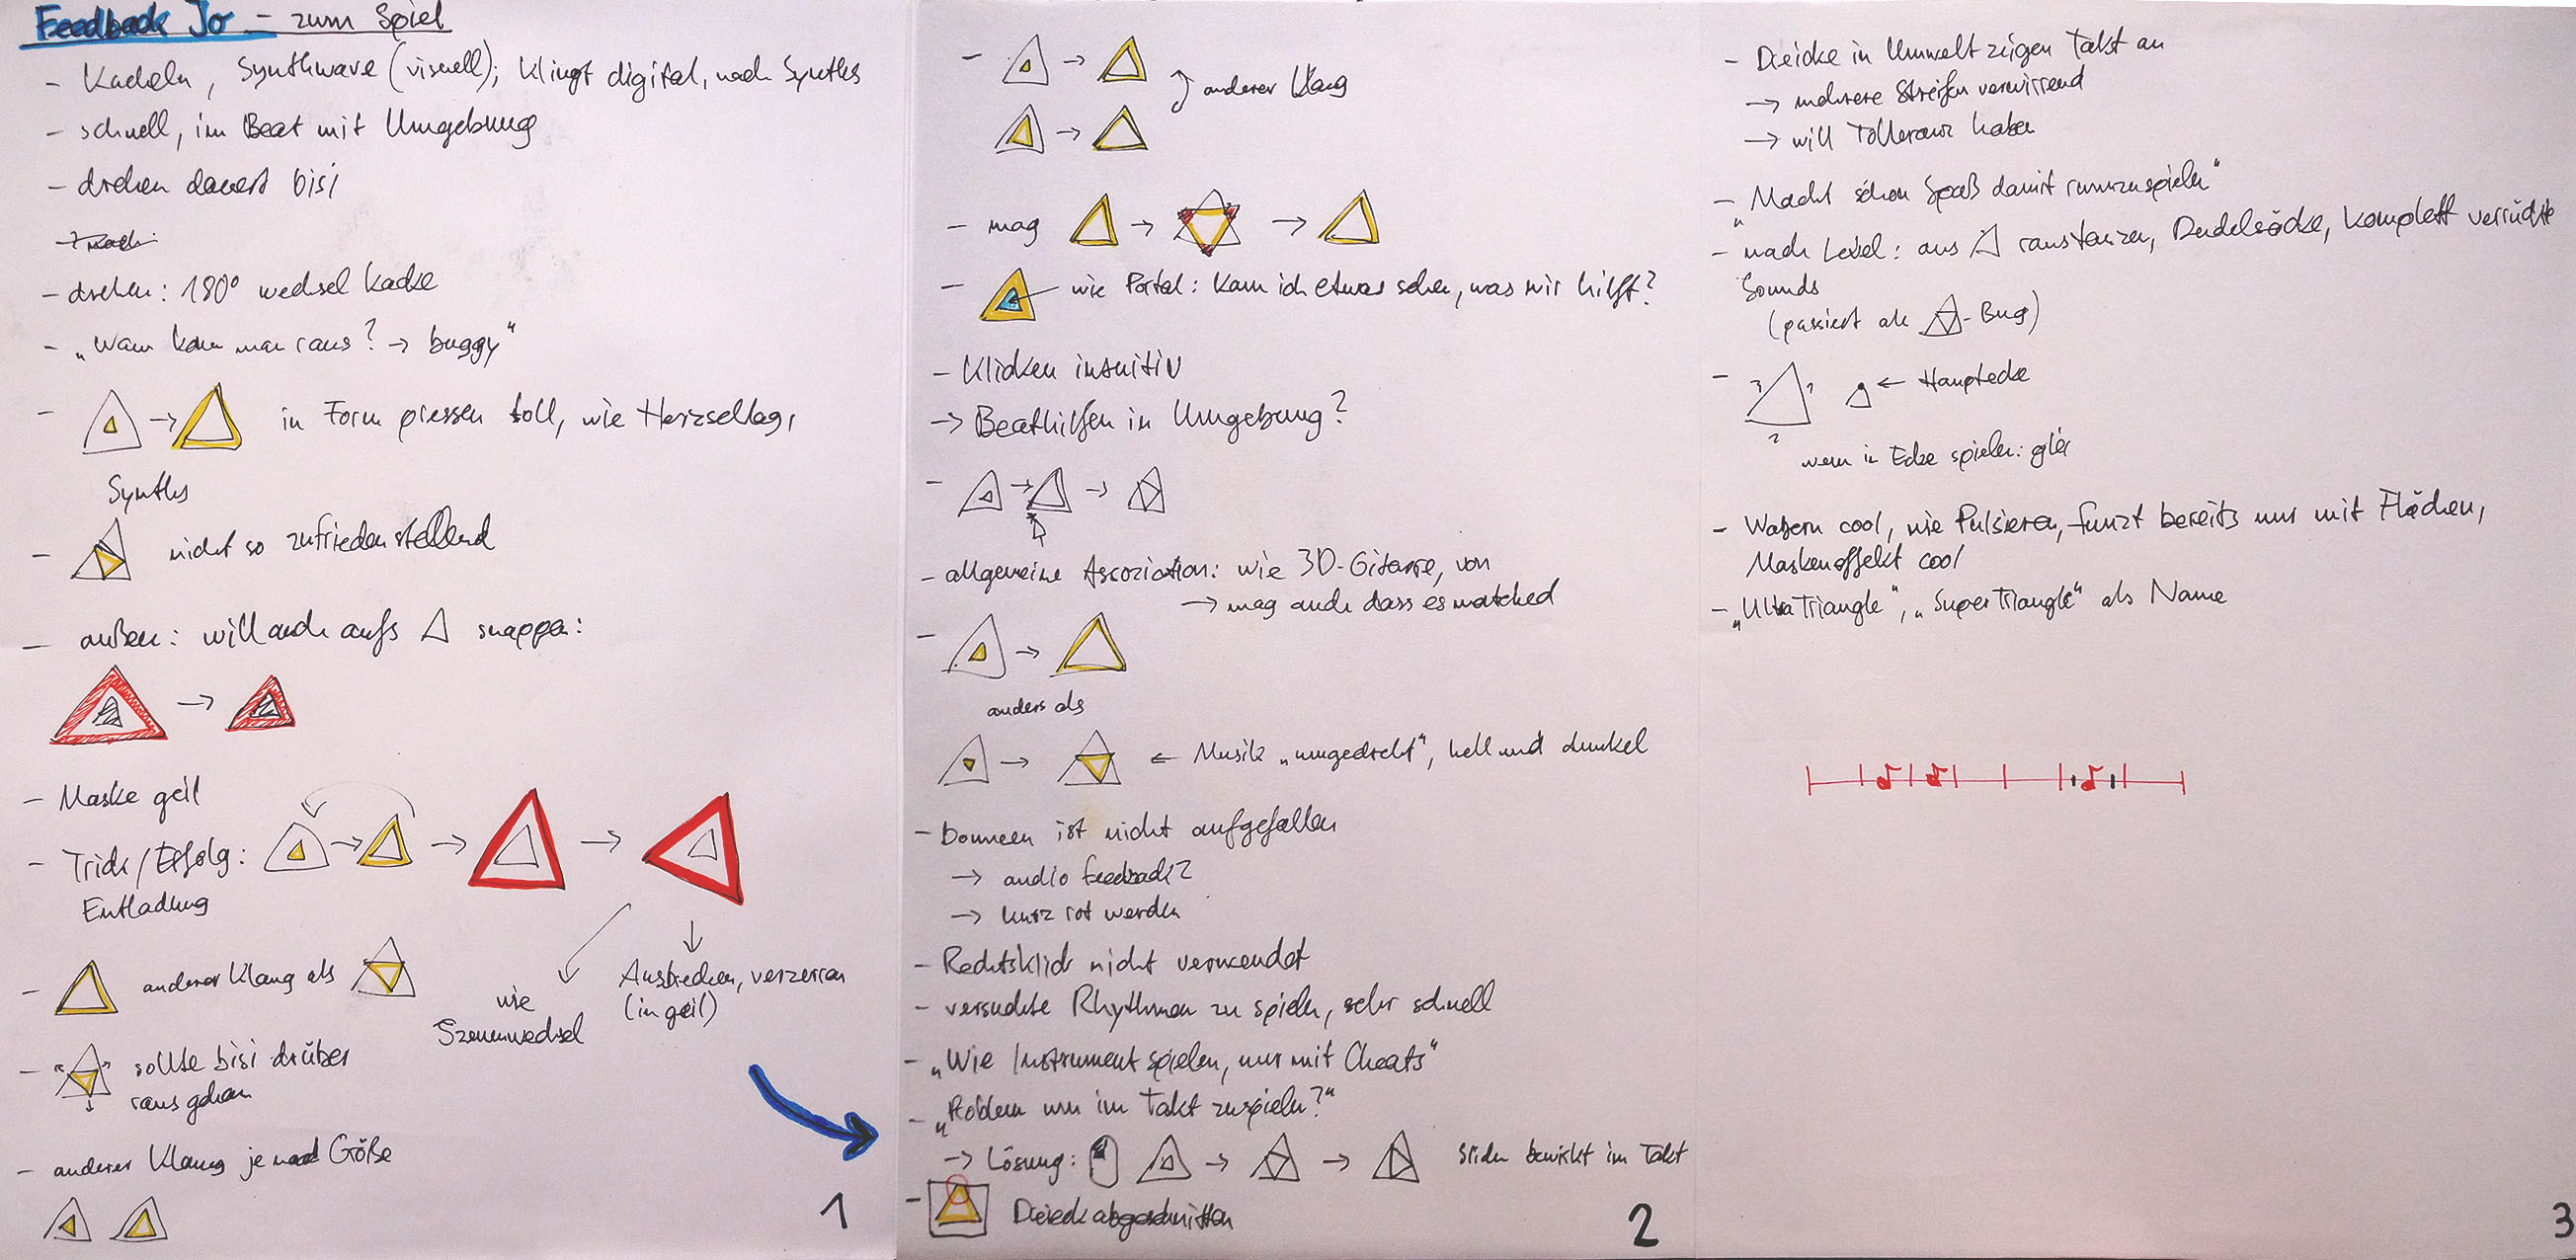 Feedback Jo – zum Spiel
- Kacheln, Synthwave (visuell); klingt digital, nach Synths
- schnell, im Beat mit Umgebung
- drehen dauert bisi
- drehen: 180° wechsel kacke
- „Wann kann man raus? → buggy“
- → in Form pressen toll, wie Herzschlag,
Synths
- nicht so zufriedenstellend
- außen: will auch aufs △ snappen:
→
- Maske geil
- Trick/Erfolg: → → →
Entladung
- anderer Klang als
wie
Szenenwechsel
Ausbrechen, verzerren
(in geil)
- sollte bisi drüber
raus gehen
- anderer Klang je nach Größe
1
- →
anderer Klang
→
- mag → →
- wie Portal: kann ich etwas sehen, was mir hilft?
- Klicken intuitiv
→ Beathilfen in Umgebung?
- → →
- allgemeine Assoziation: wie 3D-Gitarre, von
→ mag auch dass es matched
- →
anders als
→ ← Musik „umgedreht“, hell und dunkel
- Bouncen ist nicht aufgefallen
→ audio feedback?
→ kurz rot werden
- Rechtsklick nicht verwendet
- versuchte Rhythmen zu spielen, sehr schnell
- „Wie Instrument spielen, nur mit Cheats“
- „Problem um im Takt zu spielen?“
→ Lösung: → → bewirkt im Takt
- Dreieck abgeschnitten
2
- Dreicke in Umwelt zeigen Takt an
→ mehrere Streifen verwirrend
→ will Tolleranz haben
- „Macht schon Spaß damit rumzuspielen“
- nach Level: aus △ raustanzen, Dudelsäcke, komplett verrückte
Sounds
(passiert als -Bug)
- 3 1 ← Hauptecke
2
wenn in Ecke spielen:
- Wabern cool, wie Pulsieren, funzt bereits nur mit Flächen,
Maskeneffekt cool
- „UltraTriangle“, „SuperTriangle“ als Name
3